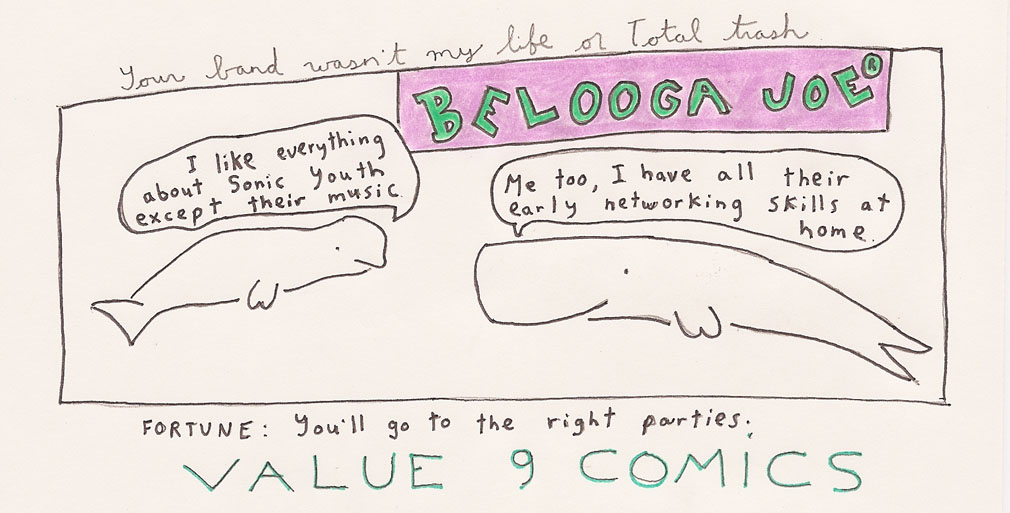 Your band wasn't my life or Total trash
BELOOGA JOE®
I like everything
about Sonic Youth
except their music.
Me too, I have all their
early networking skills at
home.
FORTUNE: You'll go to the right parties.
VALUE 9 COMICS